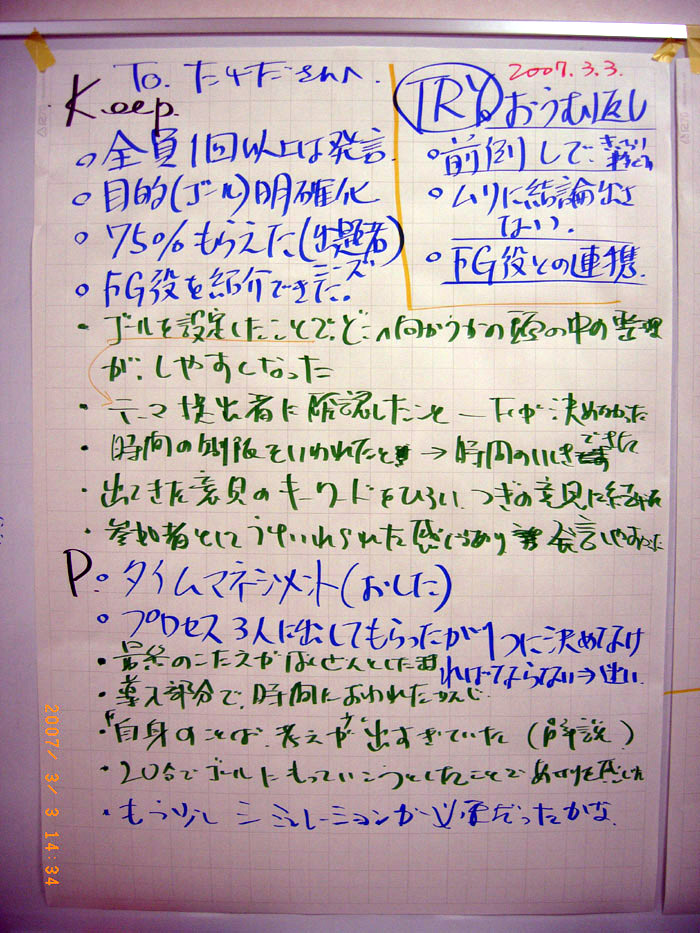 To. たゞたださんへ.
2007.3.3.
Keep
。全員1回以上は発言
。目的(ゴール)明確化
。75%もらえた(出題者)
ニーズ
。FG役を紹介できた。
TRY
。おうむ返し
。前倒しで.
。ムリに結論出さ
ない.
。FG役との連携.
・ゴールを設定したことで、どこへ向かうかの頭の中の整理
が、しやすくなった
・テーマ提出者に確認したこと
・時間の制限をいわれたとき → 時間の
できた
・出てきた意見のキーワードをひろい、つぎの意見に
・参加者としてうけいれられた感じがあり 発言しやすかった
P
。タイムマネジメント(おした)
。プロセス3人に出してもらったが1つに決めてなけ
ればてならない⇒迷い
・最終のこたえがばくぜんとした
・導入部分で、時間におわれたかんじ
・自身のことば、考えが出すぎていた(解説)
・20分でゴールにもっていこうとしたことであせりを感じた
・もう少し シミュレーションが必要だったかな
2007/ 3/ 3 14:34